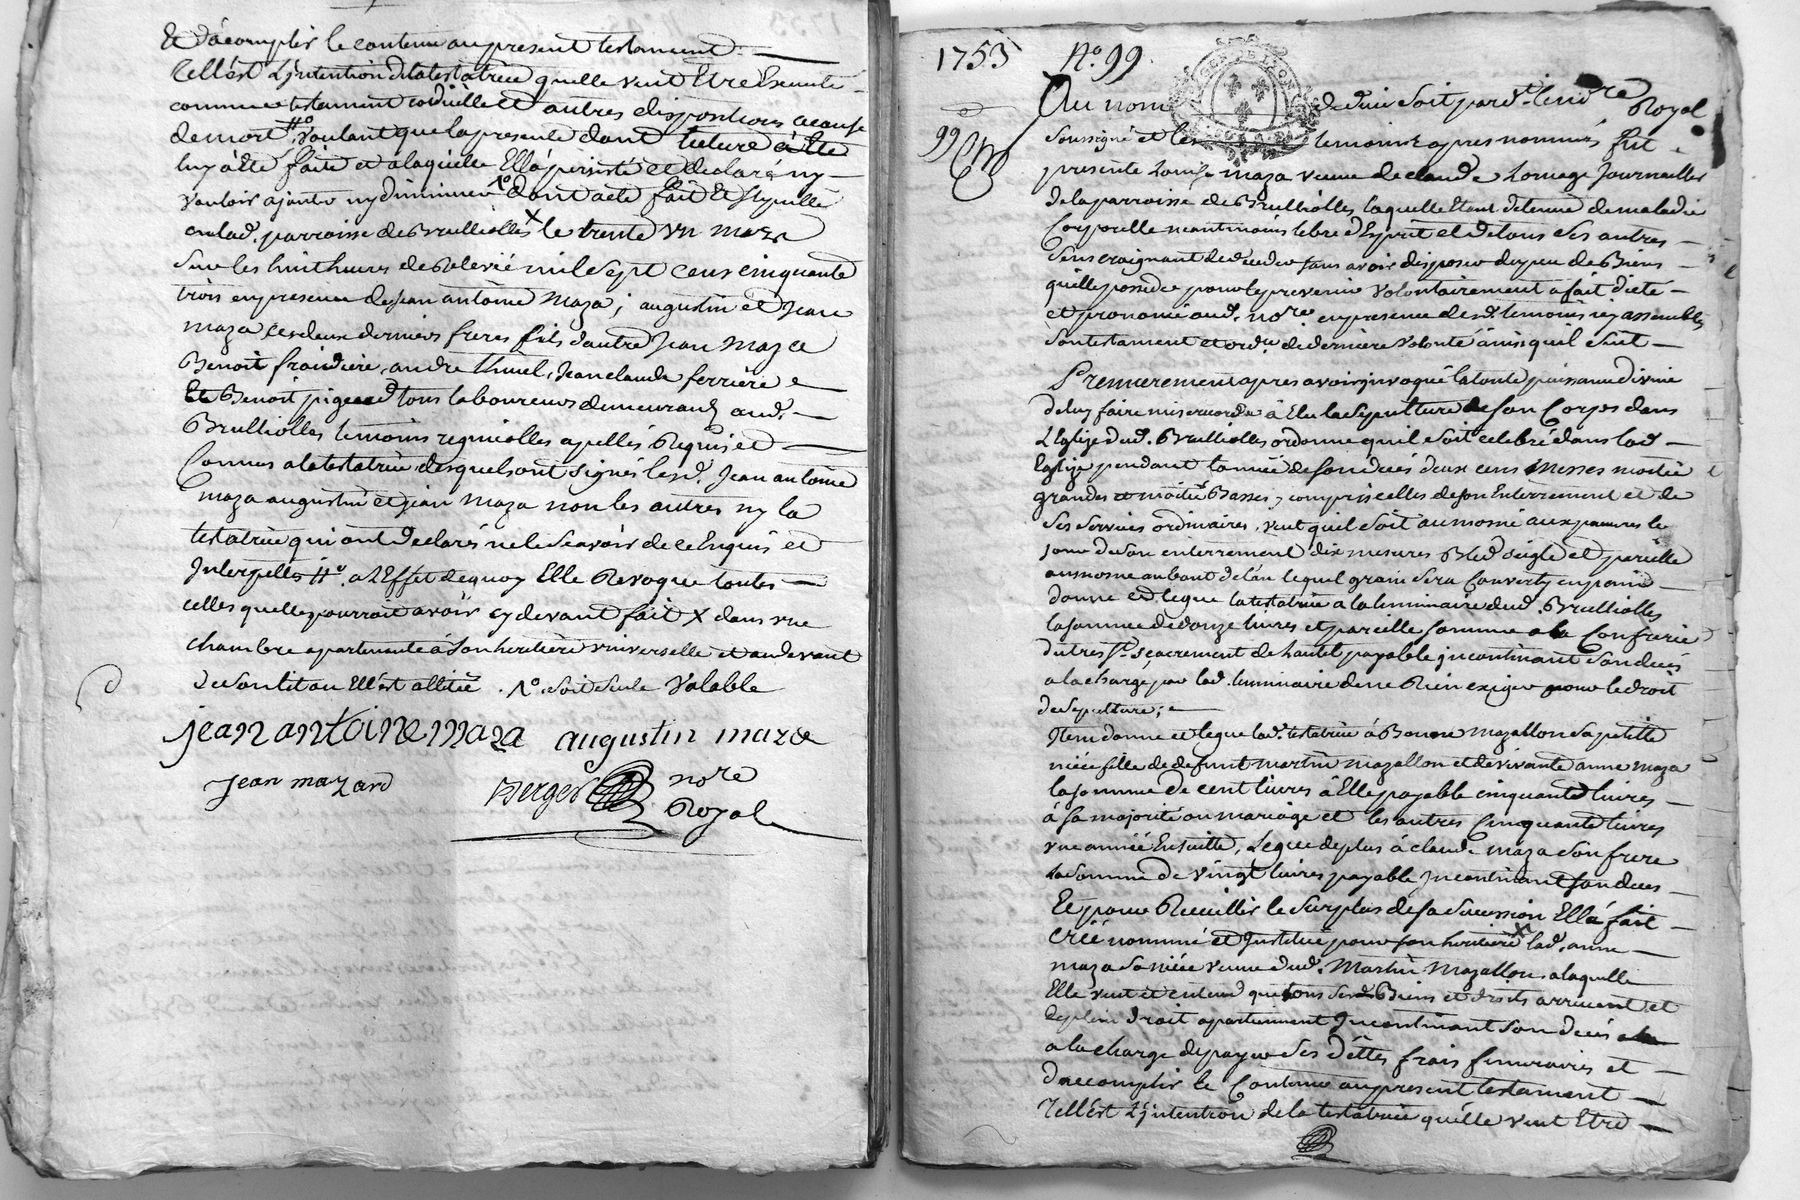 Et dacomplir le contenu au present testament
Tellest L'jntention de la testatrice quelle veut Etre Executé
comme testament codicille et autres dispositions a cause
de mort #o voulant que la presente dont lecture a été
luy a été faite et a laquelle Ella persisté et declaré ny
vouloir ajouter ny diminuer ʌo dont acte fait Et
aulad. parroisse de Brullioles x le trente un mars
sur les huit heures de Relevée mil sept cens cinquante
trois en presence de jean antoine maza, augustin et Jean
maza ces deux derniers freres fils dautre Jean Maza
Benoit fraidiere, andre thiuel, Jean claude ferriere
Et Benoit pigeard tous laboureurs demeurants aud.
Brullioles temoins appellés Requis et
Connus a la testatrice desquels ont signés lesd. Jean antoine
maza augustin et jean maza non les autres ny la
testatrice qui ont declarés ne le scavoir de ce Enquis et
Jnterpellés #o. a L'Effet de quoy Elle Revoque toutes
celles quelle pourrait avoir cy devant fait X dans une
chambre apartenante a son heritiere universelle et au devant
de son lit ou Ellest allitée . ʌo. soit seule valable
jean antoine maza augustin maza
jean mazard Berger nore
Royal
1753 No. 99.
99
Au nom de dieu soit pard.t le nore Royal
soussigné et les temoins apres nommés fut
presente Louise maza veuve de claude Journallier
de la parroisse de Brullioles laquelle Etant detenue de maladie
Corporelle neantmoins libre d'Esprit et de tous ses autres
sens craignant de deceder sans avoir disposer du peu de Biens
quelle possede pour le prevenir volontairement a fait dicté
et prononcé aud. nore en presence desd. temoins icy assemblés
son testament et ord.ce de derniere volonté ainsi quil suit
Premierement apres avoir jnvoqué la toute puissance divine
de luy faire misericorde à Elu la sepulture de son Corps dans
L'Eglize dud. Brullioles ordonne quil soit celebré dans lad.
Eglize pendant lannée de son decés deux cens Messes moitié
grandes et moitié Basses, compris celles de son Enterrement et de
ses services ordinaires, veut quil soit aumosné aux pauvres le
jour de son enterrement dix mesures Bled seigle et pareille
aumosne au bout de l'an lequel grain sera Converty en pain
donne et legue la testatrice a la luminaire dud. Brullioles
la somme de douze livres et pareille somme a la Confrerie
du tres St. sacrement de hautel payable jncontinant son decés
a la charge par lad. luminaire de ne Rien exiger pour le droit
de sepulture;
Jtem donne et legue lad. testatrice à Benoite mazallon sa petitte
niece fille de defunt martin mazallon et de vivante anne maza
la somme de cent livres à Elle payable cinquante livres
à sa majorité ou mariage et les autres Cinquante livres
une année Ensuitte, Legue de plus à claude maza son frere
la somme de vingt livres payable Jncontinant son deces
Et pour Recuillir le surplus de sa succession Ella fait
créé nommé et Jnstitué pour son heritiere x lad. anne
maza sa niece veuve dud. Martin Mazallon a laquelle
Elle veut et entend que tous sesd. Biens et droits arrivent et
de plein droit apartiennent Jncontinant son decés
a la charge de payer ses dettes frais funeraires et
daccomplir le Contenu au present testament
Tellest L'jntention de la testatrice quelle veut Etre